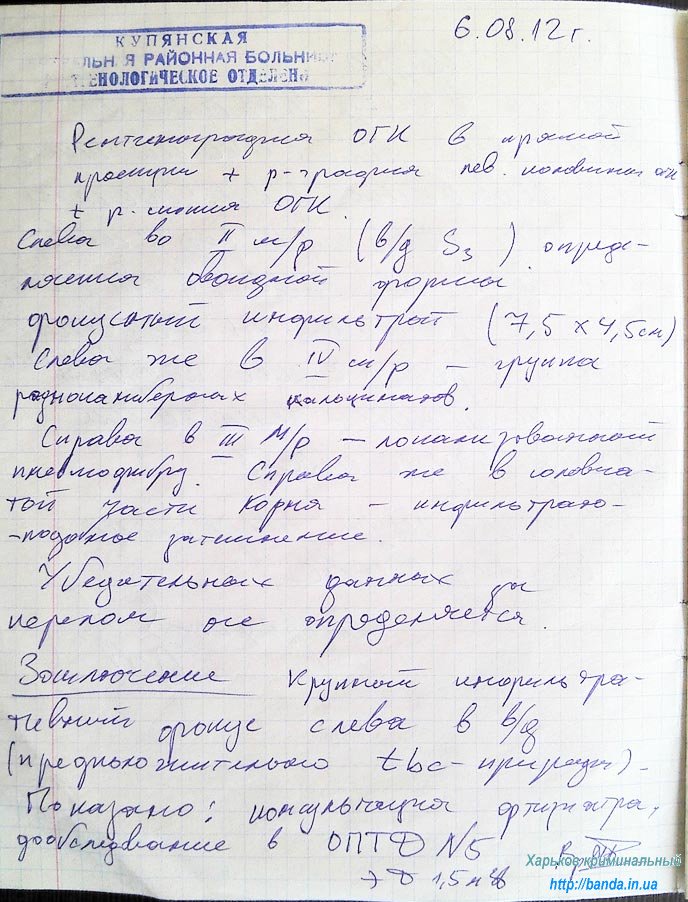 6.08.12 г.
КУПЯНСКАЯ
ЛЬН Я РАЙОННАЯ БОЛЬНИЦ
ТЕНОЛОГИЧЕСКОЕ ОТДЕЛЕНИ
Рентгенография ОГК в прямой
проекции + р-графия лев. половины ОГК
+ р-скопия ОГК.
Слева во II м/р (в/д S3) опреде-
ляется овоидной формы
фокусный инфильтрат (7,5 х 4,5 см)
Слева же в IV м/р – группа
разнокалиберных кальцинатов.
Справа в III м/р – локализованный
пневмофиброз. Справа же в головча-
той части корня – инфильтрато-
-подобное затемнение.
Убедительных данных за
перелом не определяется.
Заключение крупный инфильтра-
тивный фокус слева в в/д
(предположительно tbc-природы).
Показано: консультация фтизиатра,
дообследование в ОПТД №5
1,5 мЗв
Харьков криминальный
http://banda.in.ua